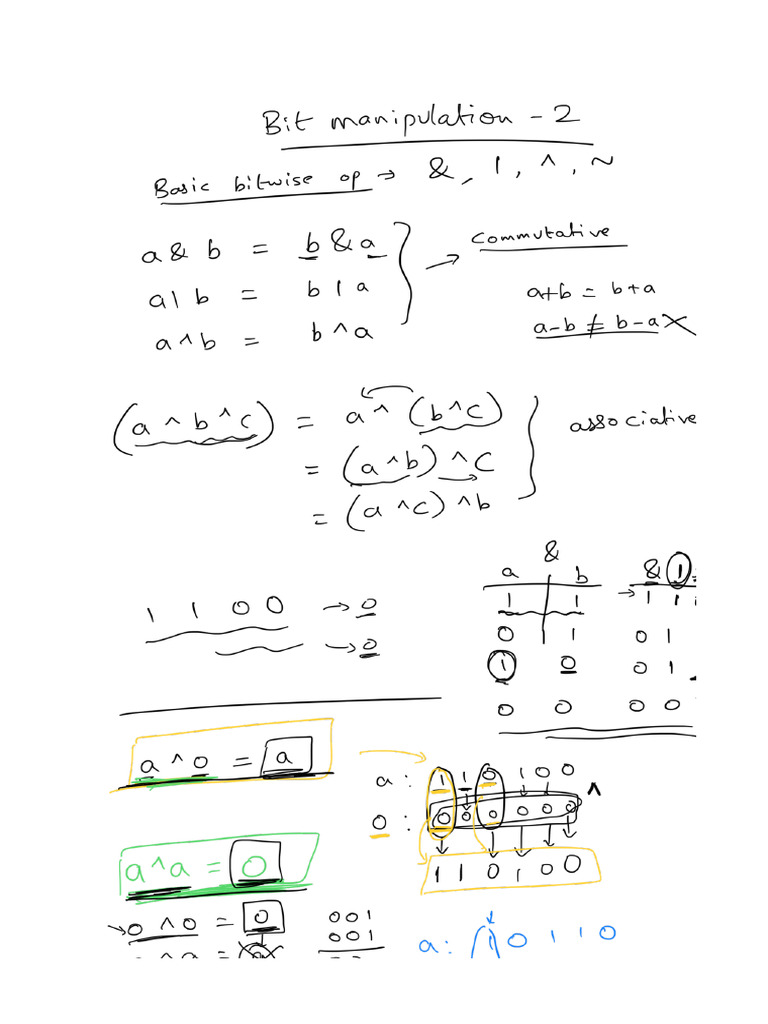 Bit manipulation - 2
Basic bitwise op → &, |, ^, ~
a & b = b & a
a | b = b | a
a ^ b = b ^ a
Commutative
a+b = b+a
a-b ≠ b-a ×
(a ^ b ^ c) = a ^ (b ^ c)
= (a ^ b) ^ c
= (a ^ c) ^ b
associative
1 1 0 0 → 0
→ 0
&
a b
1 1
0 1
1 0
0 0
& 1
→ 1 1
0 1
0 1
0 0
a ^ 0 = a
a : 1 1 0 1 0 0
^
0 : 0 0 0 0 0 0
1 1 0 1 0 0
a ^ a = 0
→ 0 ^ 0 = 0
001
001
a: 1 0 1 1 0